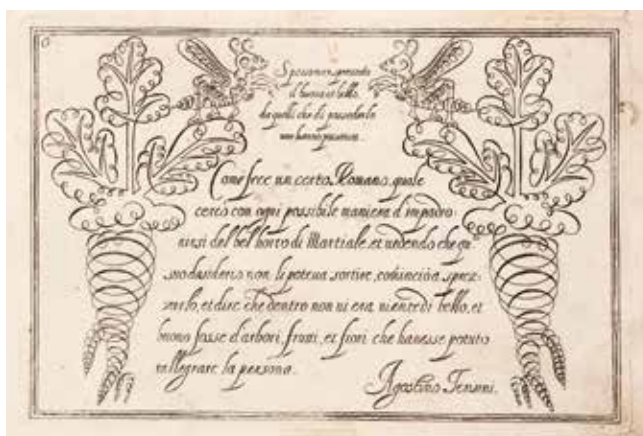 Sprezzano sovente
il buono et bello
da quelli che di possederlo
non hanno possanza.
Come fece un certo Romano, quale
cercò con ogni possibile maniera d'impadro:
nirsi del bel horto di Martiale, et vedendo che q
suo desiderio non li poteva sortire, cominciò a sprez:
zarlo, et dire che dentro non vi era niente di bello, et
buono fosse d'arbori, frutti, et fiori che havesse potuto
rallegrare la persona.
Agostino